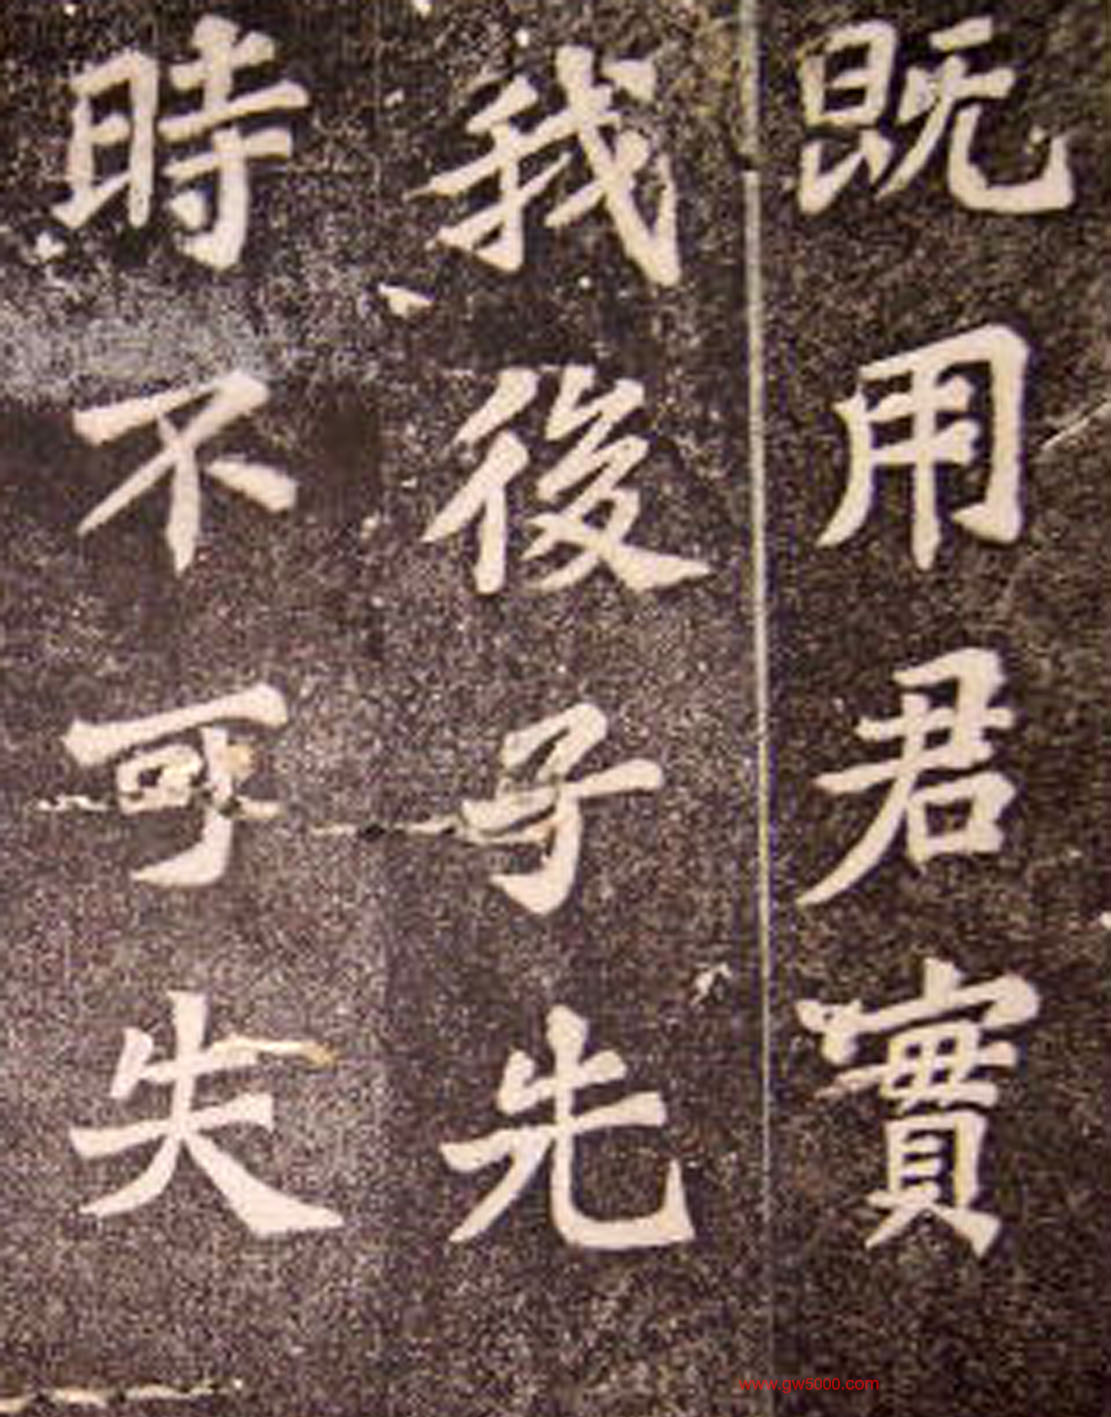 既用君實
我後子先
時不可失
www.gw5000.com